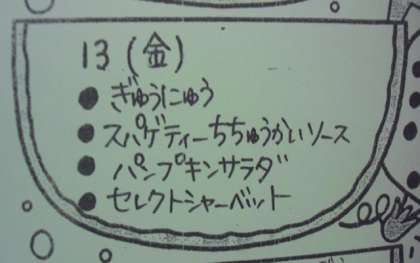 13(金)
●ぎゅうにゅう
●スパゲティーちちゅうかいソース
●パンプキンサラダ
●セレクトシャーベット